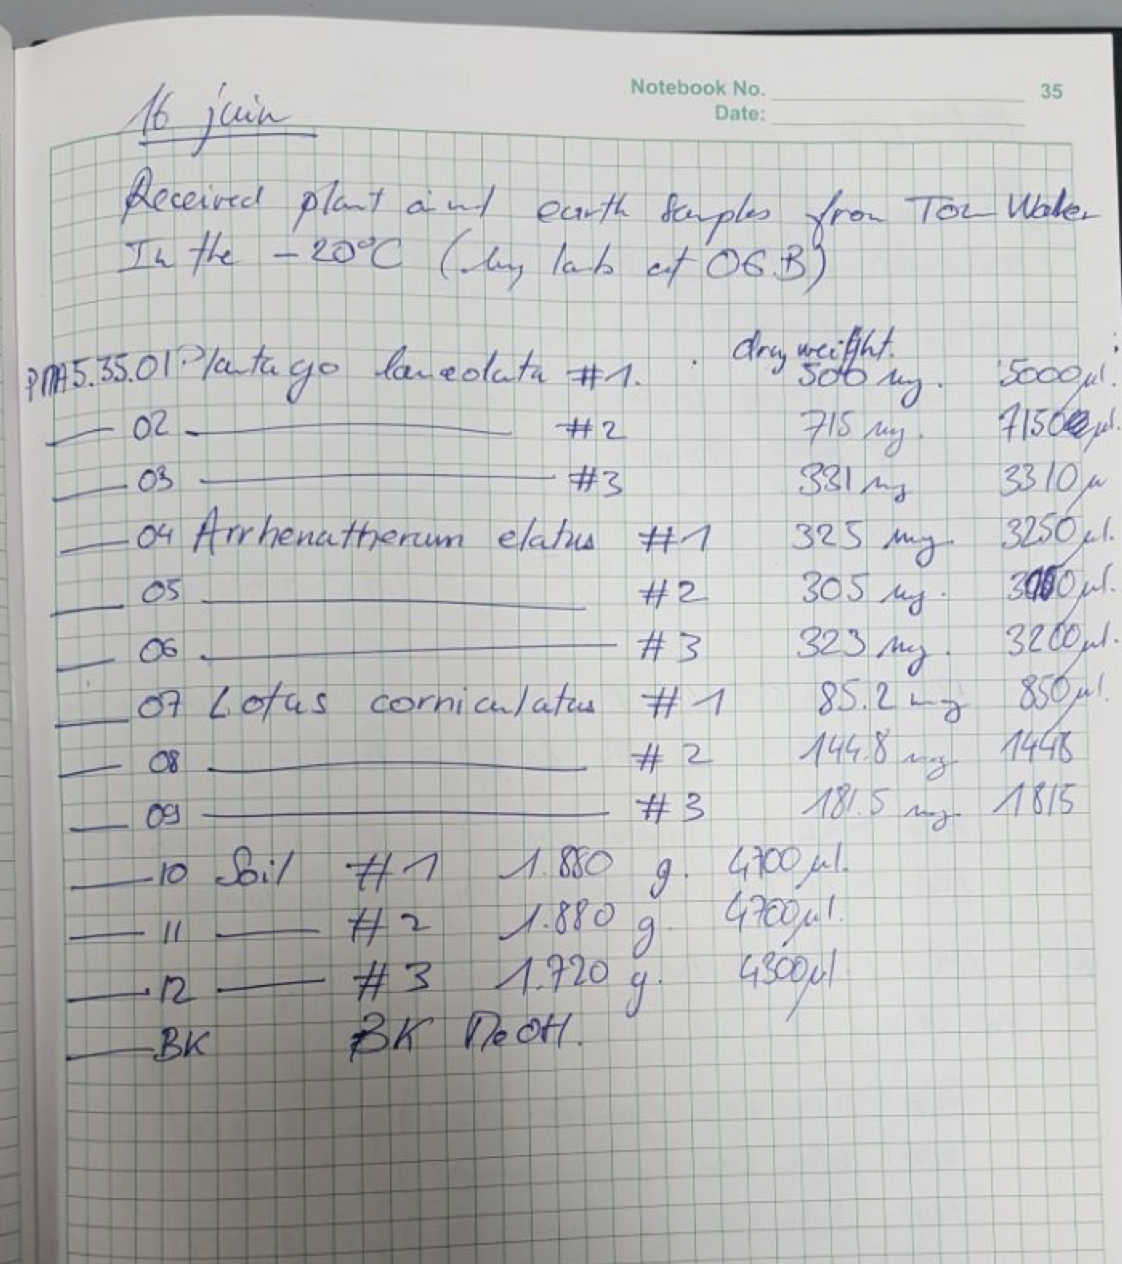 Notebook No. 35
Date:
16 juin
Received plant and earth samples from Tom Walker
In the -20°C (my lab at OGB)
dry weight.
PMA5.35.01 Plantago lanceolata #1. 500 mg. 5000µl.
02 #2 715 mg. 7150µl.
03 #3 331 mg 3310µ
04 Arrhenatherum elatus #1 325 mg. 3250µl.
05 #2 305 mg. µl.
06 #3 323 mg. 3200µl.
07 Lotus corniculatus #1 85.2 mg 850µl.
08 #2 144.8 mg 1448
09 #3 181.5 mg. 1815
10 Soil #1 1.880 g. 4700µl.
11 #2 1.880 g. 4700µl.
12 #3 1.720 g. 4300µl
BK BK MeOH.